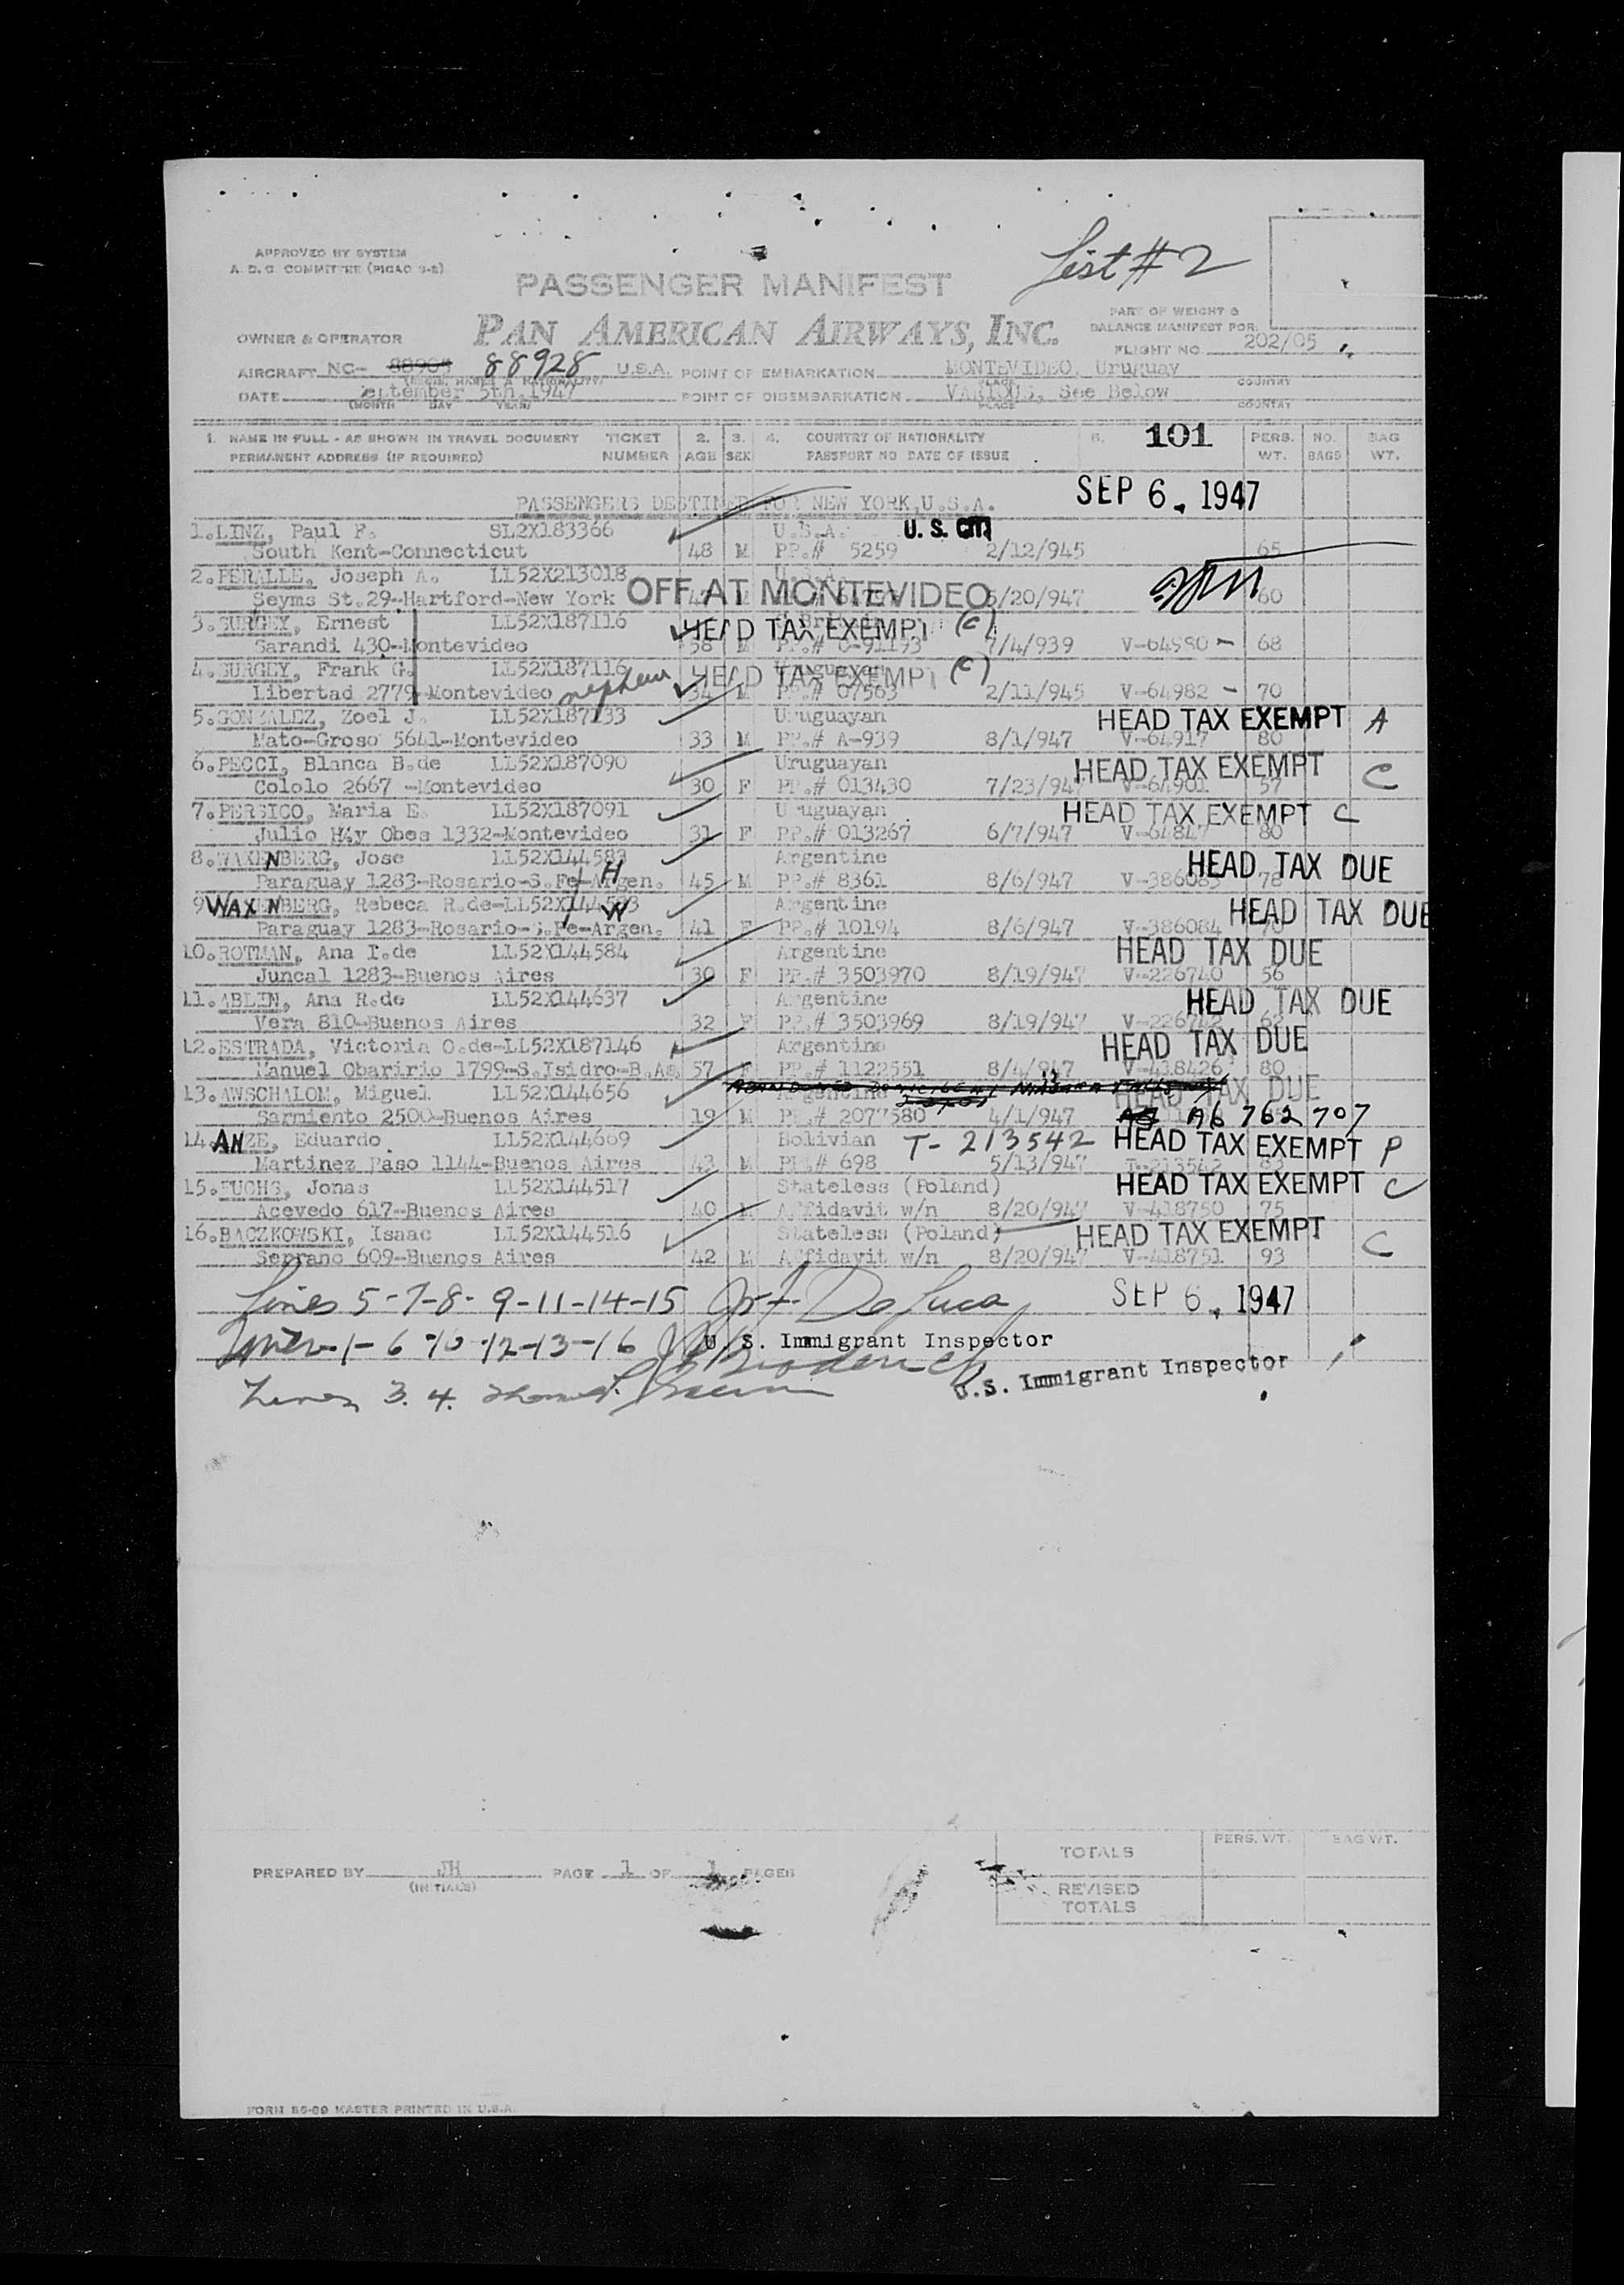 List # 2
APPROVED BY SYSTEM
A. D. C. COMMITTEE (PICAO 3-2)
PASSENGER MANIFEST
PAN AMERICAN AIRWAYS, INC.
PART OF WEIGHT &
BALANCE MANIFEST FOR:
OWNER & OPERATOR
FLIGHT NO. 202/05
AIRCRAFT NC- 88905 88928 U.S.A. POINT OF EMBARKATION MONTEVIDEO, Uruguay
PLACE COUNTRY
DATE September 5th, 1947 POINT OF DISEMBARKATION VARIOUS, See Below
(MONTH DAY YEAR) PLACE COUNTRY
1. NAME IN FULL - AS SHOWN IN TRAVEL DOCUMENT TICKET 2. 3. 4. COUNTRY OF NATIONALITY 101 PERS. NO. BAG
PERMANENT ADDRESS (IF REQUIRED) NUMBER AGE SEX PASSPORT NO DATE OF ISSUE WT. BAGS WT.
SEP 6, 1947
PASSENGERS DESTINED FOR NEW YORK, U.S.A.
1. LINZ, Paul F. SL2X183366 U.S.A. U.S. CIT
South Kent-Connecticut 48 M PP.# 5259 2/12/945 65
2. PERALLE, Joseph A. LL52X213018 U.S.A.
Seyms St.29-Hartford-New York OFF AT MONTEVIDEO 5/20/947 60
3. SURGEY, Ernest LL52X187116 HEAD TAX EXEMPT (C)
Sarandi 430-Montevideo 58 M PP.# C-91193 7/4/939 V-64980 - 68
4. SURGEY, Frank G. LL52X187116 Uruguayan HEAD TAX EXEMPT (C)
Libertad 2779-Montevideo nephew 34 M PP.# 07563 2/11/945 V-64982 - 70
5. GONZALEZ, Zoel J. LL52X187133 Uruguayan HEAD TAX EXEMPT A
Mato-Groso 5641-Montevideo 33 M PP.# A-939 8/1/947 V-64917 80
6. PECCI, Blanca B.de LL52X187090 Uruguayan HEAD TAX EXEMPT C
Cololo 2667 -Montevideo 30 F PP.# 013430 7/23/947 V-64901 57
7. PERSICO, Maria E. LL52X187091 Uruguayan HEAD TAX EXEMPT C
Julio Hay Obes 1332-Montevideo 31 F PP.# 013267 6/7/947 V-64847 80
8. WAXENBERG, Jose LL52X144583 Argentine HEAD TAX DUE
Paraguay 1283-Rosario-S.Fe-Argen. H 45 M PP.# 8361 8/6/947 V-386083 78
9. WAXENBERG, Rebeca R.de-LL52X144583 W Argentine HEAD TAX DUE
Paraguay 1283-Rosario-S.Fe-Argen. 41 F PP.# 10194 8/6/947 V-386084 70
10. ROTMAN, Ana T.de LL52X144584 Argentine HEAD TAX DUE
Juncal 1283-Buenos Aires 30 F PP.# 3503970 8/19/947 V-226740 56
11. ABLIN, Ana R.de LL52X144637 Argentine HEAD TAX DUE
Vera 810-Buenos Aires 32 F PP.# 3503969 8/19/947
12. ESTRADA, Victoria O.de-LL52X187146 Argentine HEAD TAX DUE
Manuel Obaririo 1799-S.Isidro-B.As. 57 F PP.# 1122551 8/4/947 V-418426 80
13. AWSCHALOM, Miguel LL52X144656 Argentine HEAD TAX DUE
Sarmiento 2500-Buenos Aires 19 M PP.# 2077580 4/1/947 A6 762 707
14. ANZE, Eduardo LL52X144669 Bolivian T- 213542 HEAD TAX EXEMPT P
Martinez Paso 1144-Buenos Aires 43 M PP.# 698 5/13/947 T-213542 83
15. FUCHS, Jonas LL52X144517 Stateless (Poland) HEAD TAX EXEMPT C
Acevedo 617-Buenos Aires 40 M Affidavit w/n 8/20/947 V-418750 75
16. BACZKOWSKI, Isaac LL52X144516 Stateless (Poland) HEAD TAX EXEMPT C
Serrano 609-Buenos Aires 42 M Affidavit w/n 8/20/947 V-418751 93
Lines 5-7-8-9-11-14-15 De Luca SEP 6, 1947
Lines 1-6-10-12-13-16 U. S. Immigrant Inspector
U.S. Immigrant Inspector
Lines 3. 4.
PERS. WT. BAG WT.
TOTALS
PREPARED BY JH PAGE 1 OF 1 PAGES
(INITIALS)
REVISED
TOTALS
FORM 85-09 MASTER PRINTED IN U.S.A.